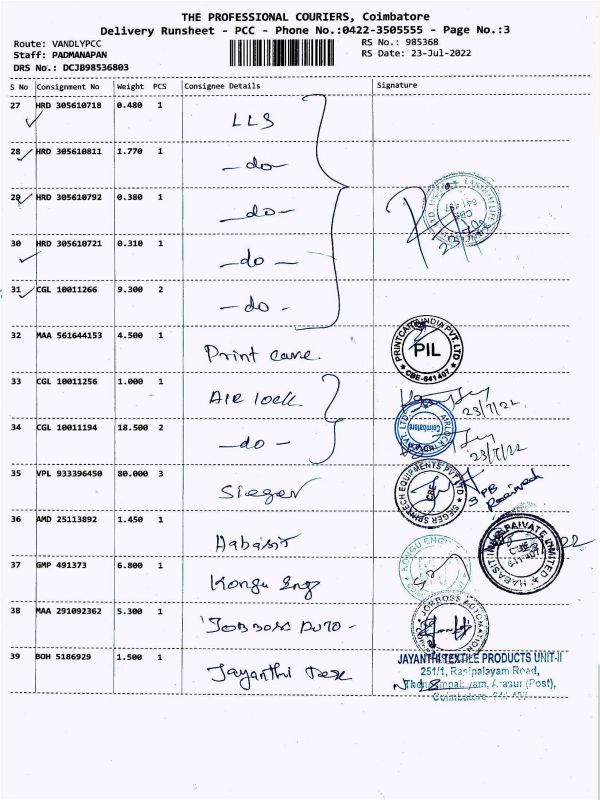 THE PROFESSIONAL COURIERS, Coimbatore
Delivery Runsheet - PCC - Phone No.:0422-3505555 - Page No.:3
Route: VANDLYPCC
RS No.: 985368
Staff: PADMANAPAN
RS Date: 23-Jul-2022
DRS No.: DCJB98536803
S No Consignment No Weight PCS Consignee Details Signature
27 HRD 305610718 0.480 1 LLS
28 HRD 305610811 1.770 1 -do-
29 HRD 305610792 0.380 1 -do-
30 HRD 305610721 0.310 1 -do-
31 CGL 10011266 9.300 2 -do-
32 MAA 561644153 4.500 1 Print care. PRINTCARE INDIA PVT. LTD PIL CBE-641407
33 CGL 10011256 1.000 1 AIR lock 23/7/22
34 CGL 10011194 18.500 2 -do- Coimbatore 23/7/22
35 VPL 933396450 80.000 3 Sieger SIEGER SPINTECH EQUIPMENTS PVT LTD CBE 3 PB Received
36 AMD 25113892 1.450 1 Habasit HABASIT PRIVATE LIMITED
37 GMP 491373 6.800 1 Kongu Eng KONGU ENGG
38 MAA 291092362 5.300 1 JOBROSS AUTO - JOBROSS AUTOMATION
39 BOH 5186929 1.500 1 Jayanthi Tex
JAYANTHI TEXTILE PRODUCTS UNIT-II
251/1, Rasipalayam Road,
Arasur (Post),
Coimbatore - 641 407